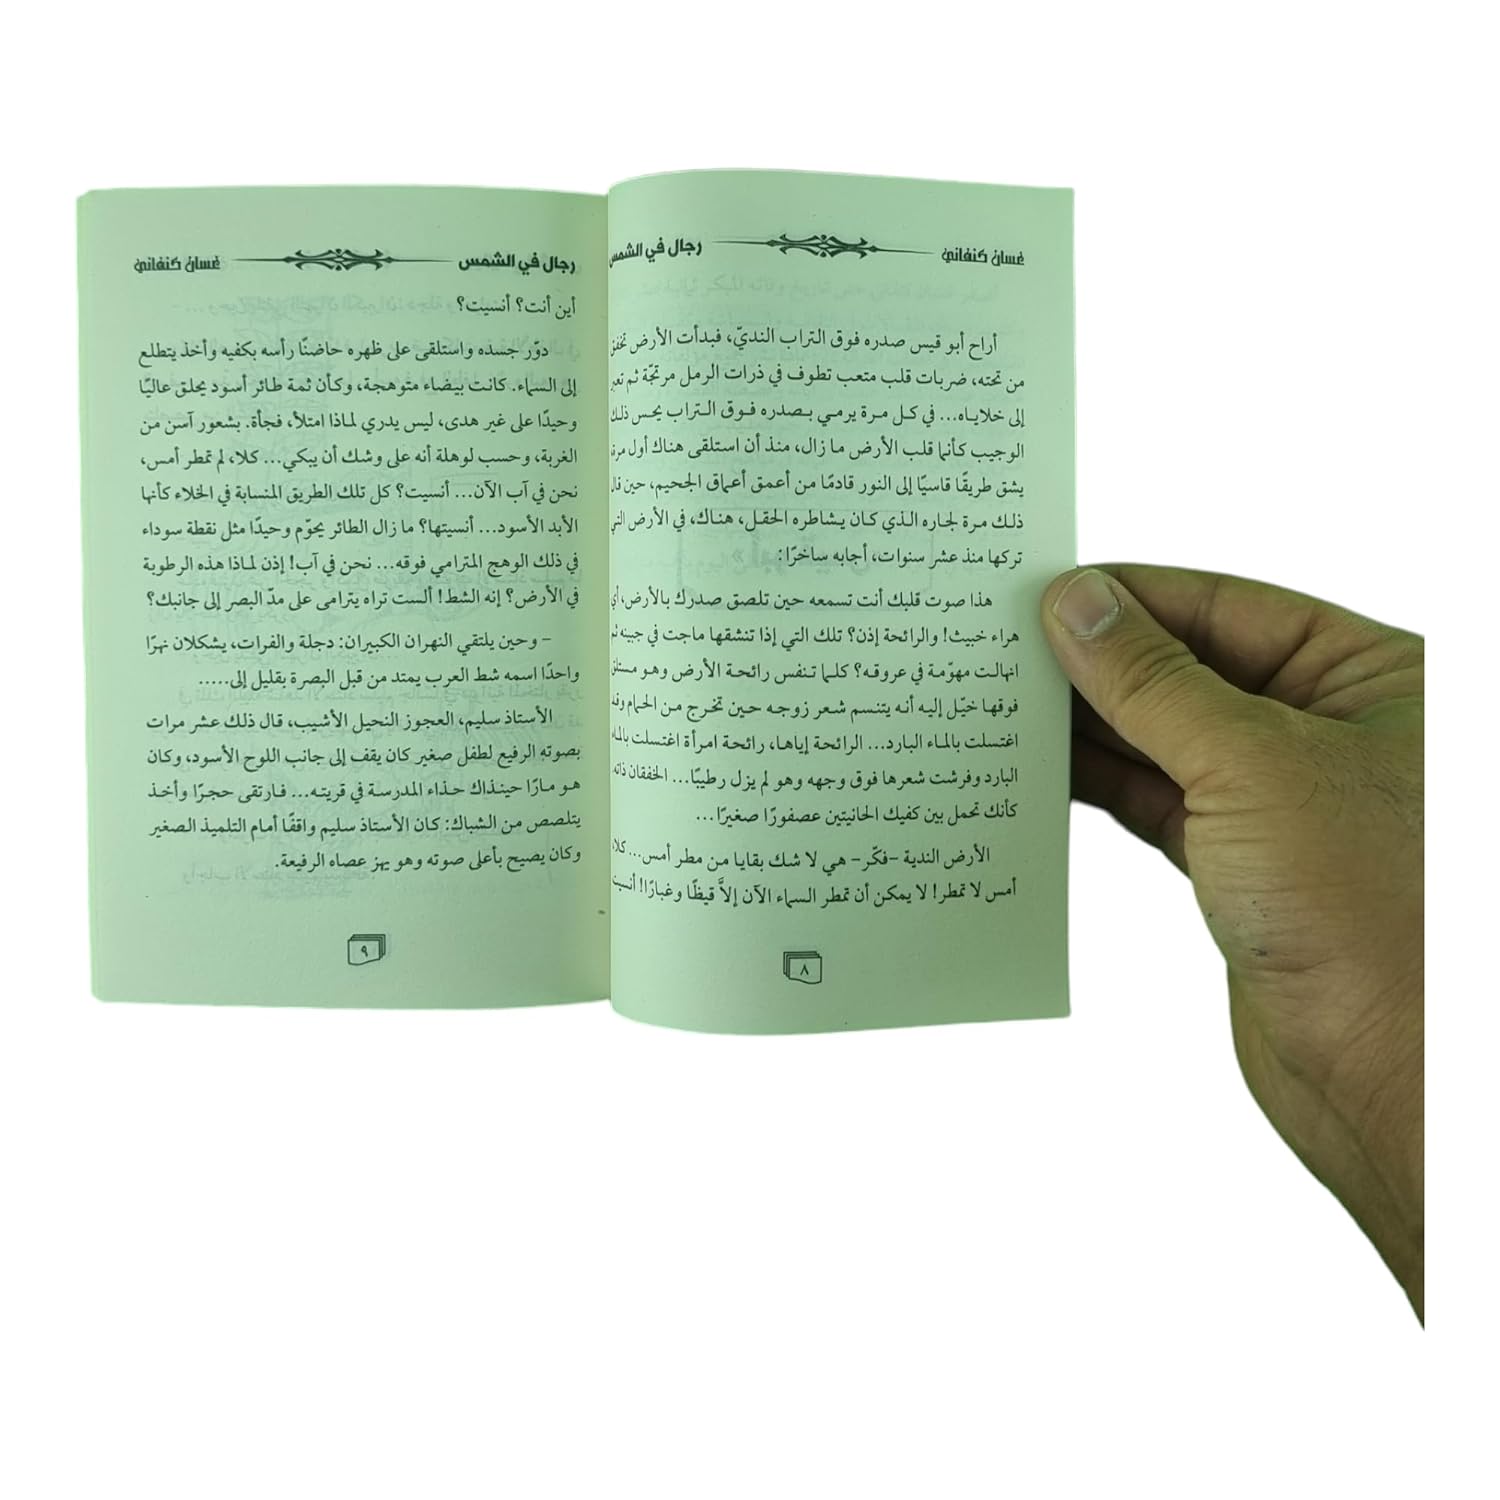 غسان كنفاني رجال في الشمس
أراح أبو قيس صدره فوق التراب النديّ، فبدأت الأرض تخفق
من تحته، ضربات قلب متعب تطوف في ذرات الرمل مرتجّة ثم تعبر
إلى خلاياه... في كل مرة يرمي بصدره فوق التراب يحس ذلك
الوجيب كأنما قلب الأرض ما زال، منذ أن استلقى هناك أول مرة
يشق طريقًا قاسيًا إلى النور قادمًا من أعمق أعماق الجحيم، حين قال
ذلك مرة لجاره الذي كان يشاطره الحقل، هناك، في الأرض التي
تركها منذ عشر سنوات، أجابه ساخرًا:
هذا صوت قلبك أنت تسمعه حين تلصق صدرك بالأرض، أي
هراء خبيث! والرائحة إذن؟ تلك التي إذا تنشقها ماجت في جبينه ثم
انهالت مهوّمة في عروقه؟ كلما تنفس رائحة الأرض وهو مستلق
فوقها خيّل إليه أنه يتنسم شعر زوجه حين تخرج من الحمام وقد
اغتسلت بالماء البارد... الرائحة إياها، رائحة امرأة اغتسلت بالماء
البارد وفرشت شعرها فوق وجهه وهو لم يزل رطيبًا... الخفقان ذاته
كأنك تحمل بين كفيك الحانيتين عصفورًا صغيرًا...
الأرض الندية -فكّر- هي لا شك بقايا من مطر أمس... كلا،
أمس لا تمطر! لا يمكن أن تمطر السماء الآن إلاَّ قيظًا وغبارًا! أنسيت
٨
رجال في الشمس غسان كنفاني
أين أنت؟ أنسيت؟
دوّر جسده واستلقى على ظهره حاضنًا رأسه بكفيه وأخذ يتطلع
إلى السماء. كانت بيضاء متوهجة، وكأن ثمة طائر أسود يحلق عاليًا
وحيدًا على غير هدى، ليس يدري لماذا امتلأ، فجأة. بشعور آسن من
الغربة، وحسب لوهلة أنه على وشك أن يبكي... كلا، لم تمطر أمس،
نحن في آب الآن... أنسيت؟ كل تلك الطريق المنسابة في الخلاء كأنها
الأبد الأسود... أنسيتها؟ ما زال الطائر يحوّم وحيدًا مثل نقطة سوداء
في ذلك الوهج المترامي فوقه... نحن في آب! إذن لماذا هذه الرطوبة
في الأرض؟ إنه الشط! ألست تراه يترامى على مدّ البصر إلى جانبك؟
– وحين يلتقي النهران الكبيران: دجلة والفرات، يشكلان نهرًا
واحدًا اسمه شط العرب يمتد من قبل البصرة بقليل إلى.....
الأستاذ سليم، العجوز النحيل الأشيب، قال ذلك عشر مرات
بصوته الرفيع لطفل صغير كان يقف إلى جانب اللوح الأسود، وكان
هو مارًا حينذاك حذاء المدرسة في قريته... فارتقى حجرًا وأخذ
يتلصص من الشباك: كان الأستاذ سليم واقفًا أمام التلميذ الصغير
وكان يصيح بأعلى صوته وهو يهز عصاه الرفيعة.
٩